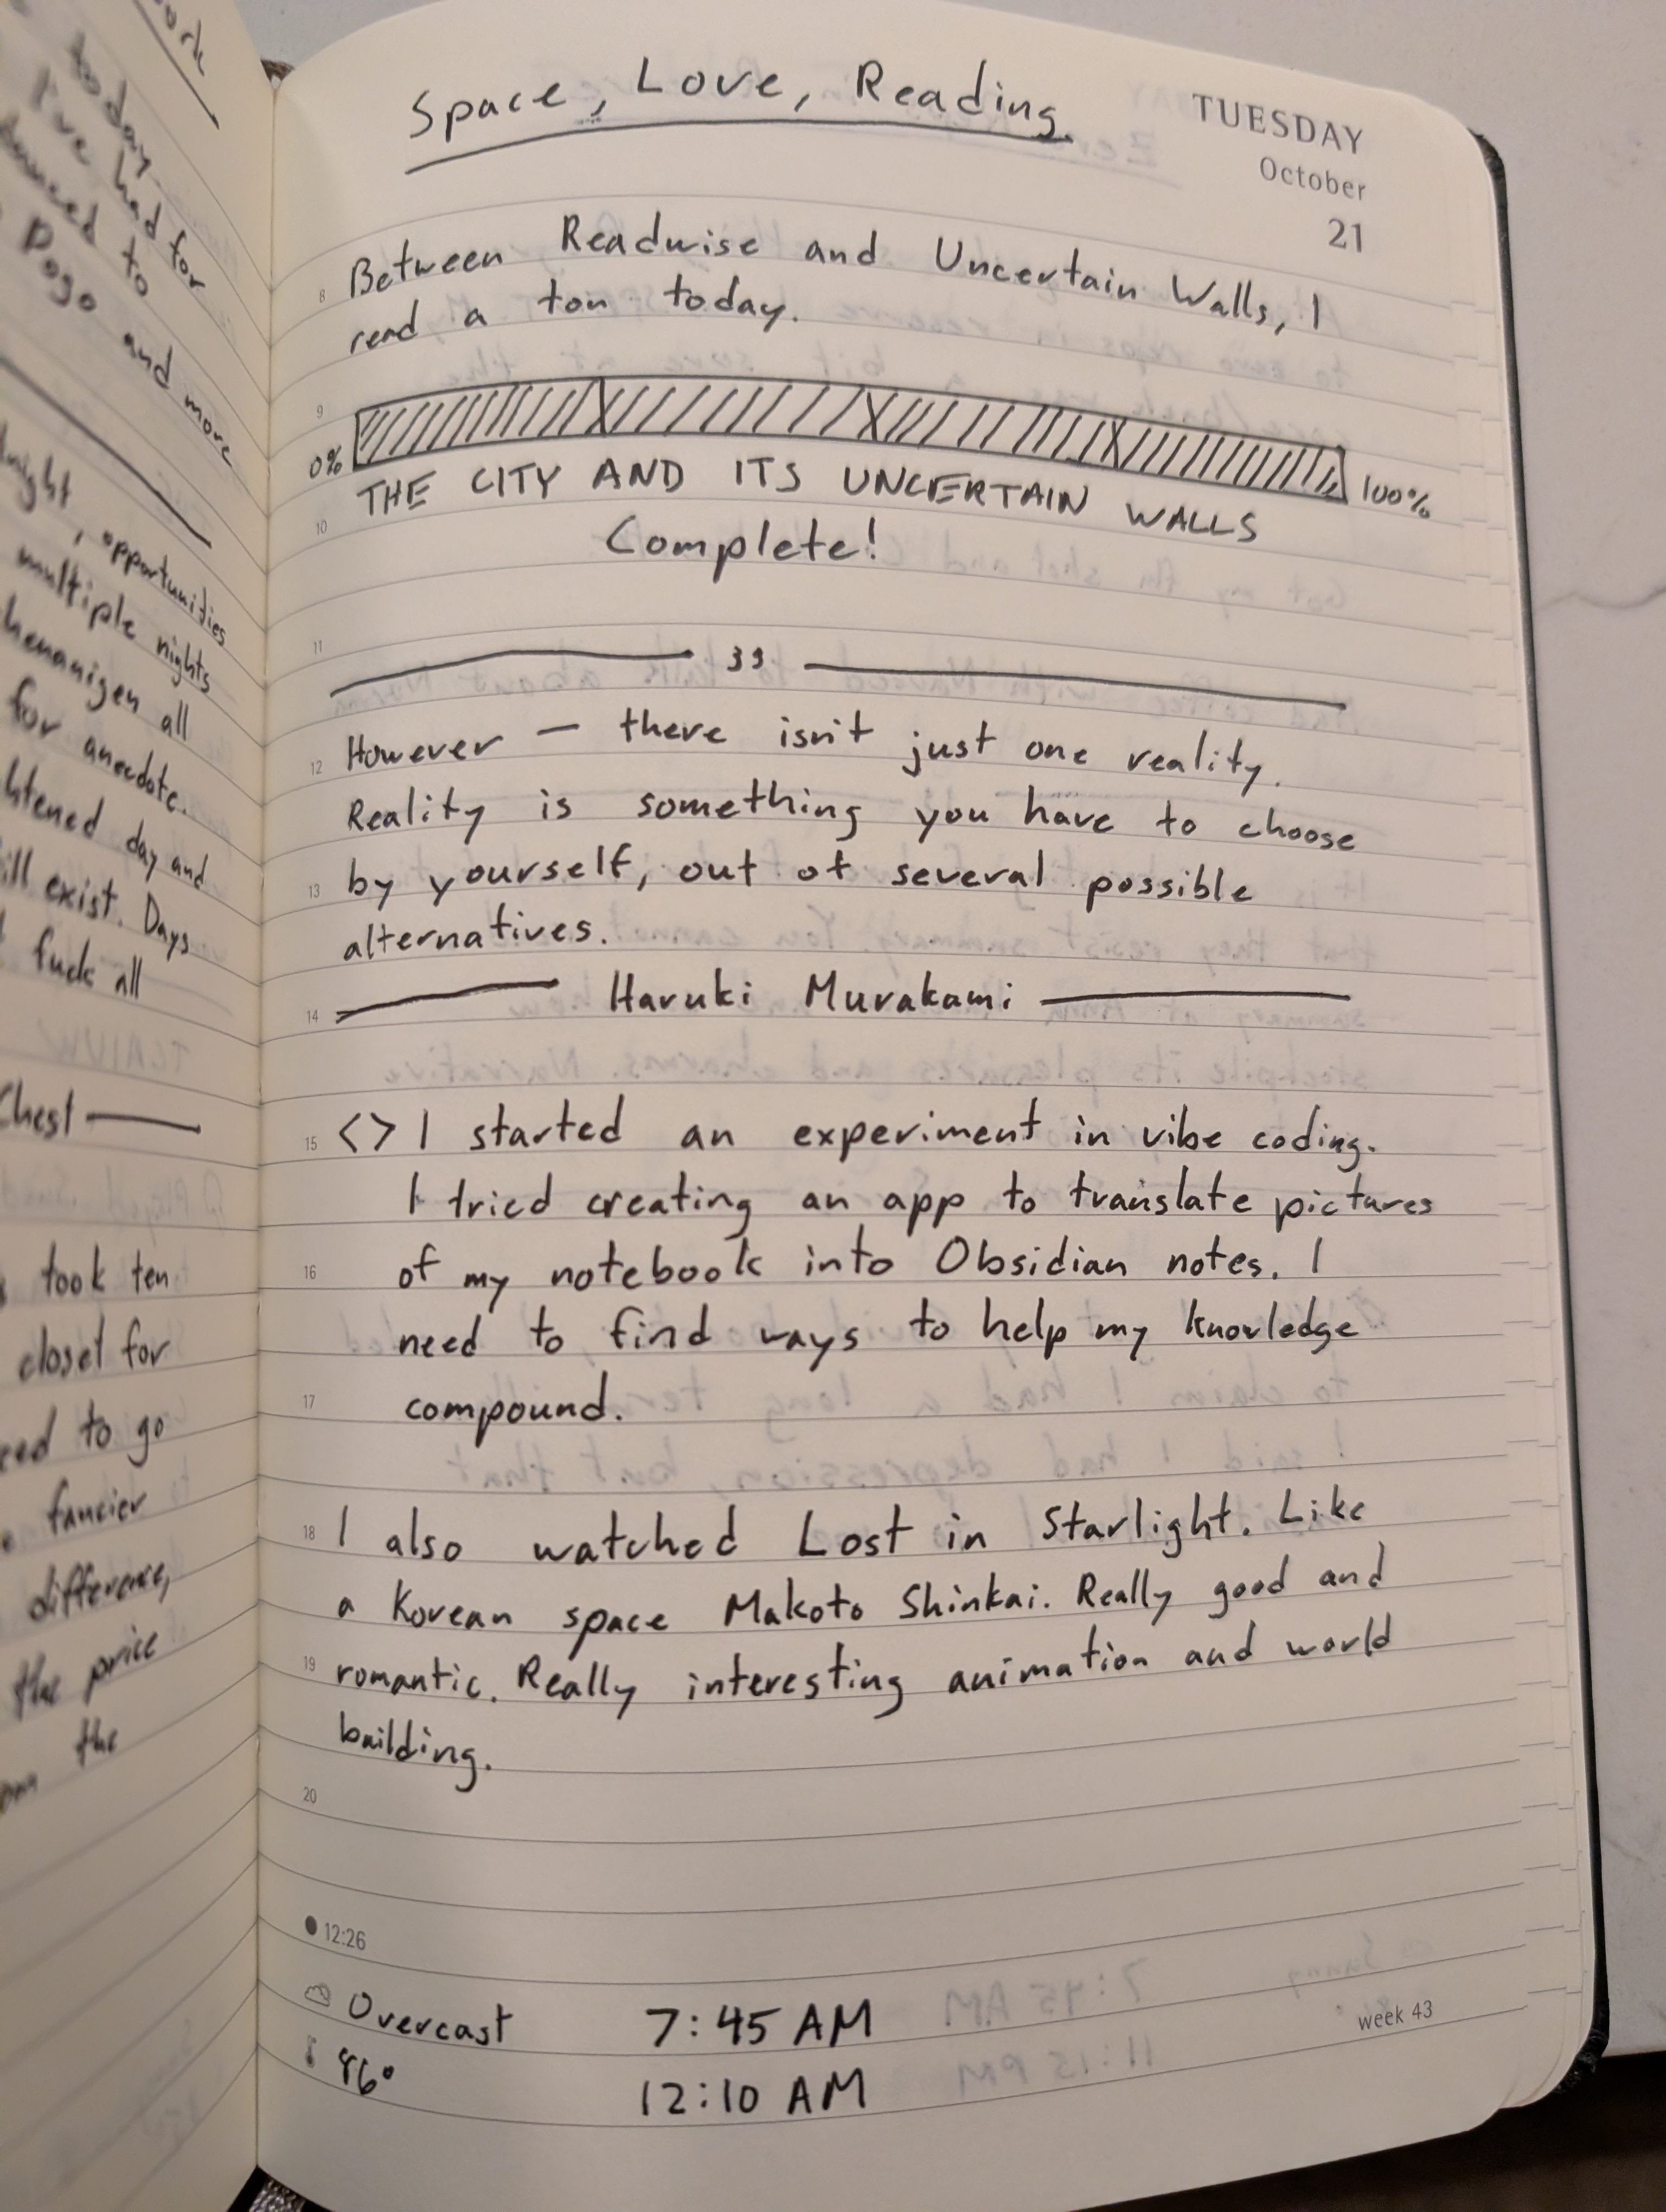 ork
today
I've had for
to
Dogo and more
night, opportunities
multiple nights
all
for anecdote.
day and
ill exist. Days
fuck all
Chest
took ten
closet for
to go
fancier
difference,
the price
the
Space, Love, Reading.
TUESDAY
October
21
8 Between Readwise and Uncertain Walls, I
read a ton today.
9
0% 100%
THE CITY AND ITS UNCERTAIN WALLS
10
Complete!
11
12 However — there isn't just one reality.
Reality is something you have to choose
13 by yourself, out of several possible
alternatives.
14 Haruki Murakami
15 <> I started an experiment in vibe coding.
I tried creating an app to translate pictures
16 of my notebook into Obsidian notes. I
need to find ways to help my knowledge
17 compound.
18 I also watched Lost in Starlight. Like
a Korean space Makoto Shinkai. Really good and
19 romantic. Really interesting animation and world
building.
20
12:26
Overcast 7:45 AM
week 43
86° 12:10 AM